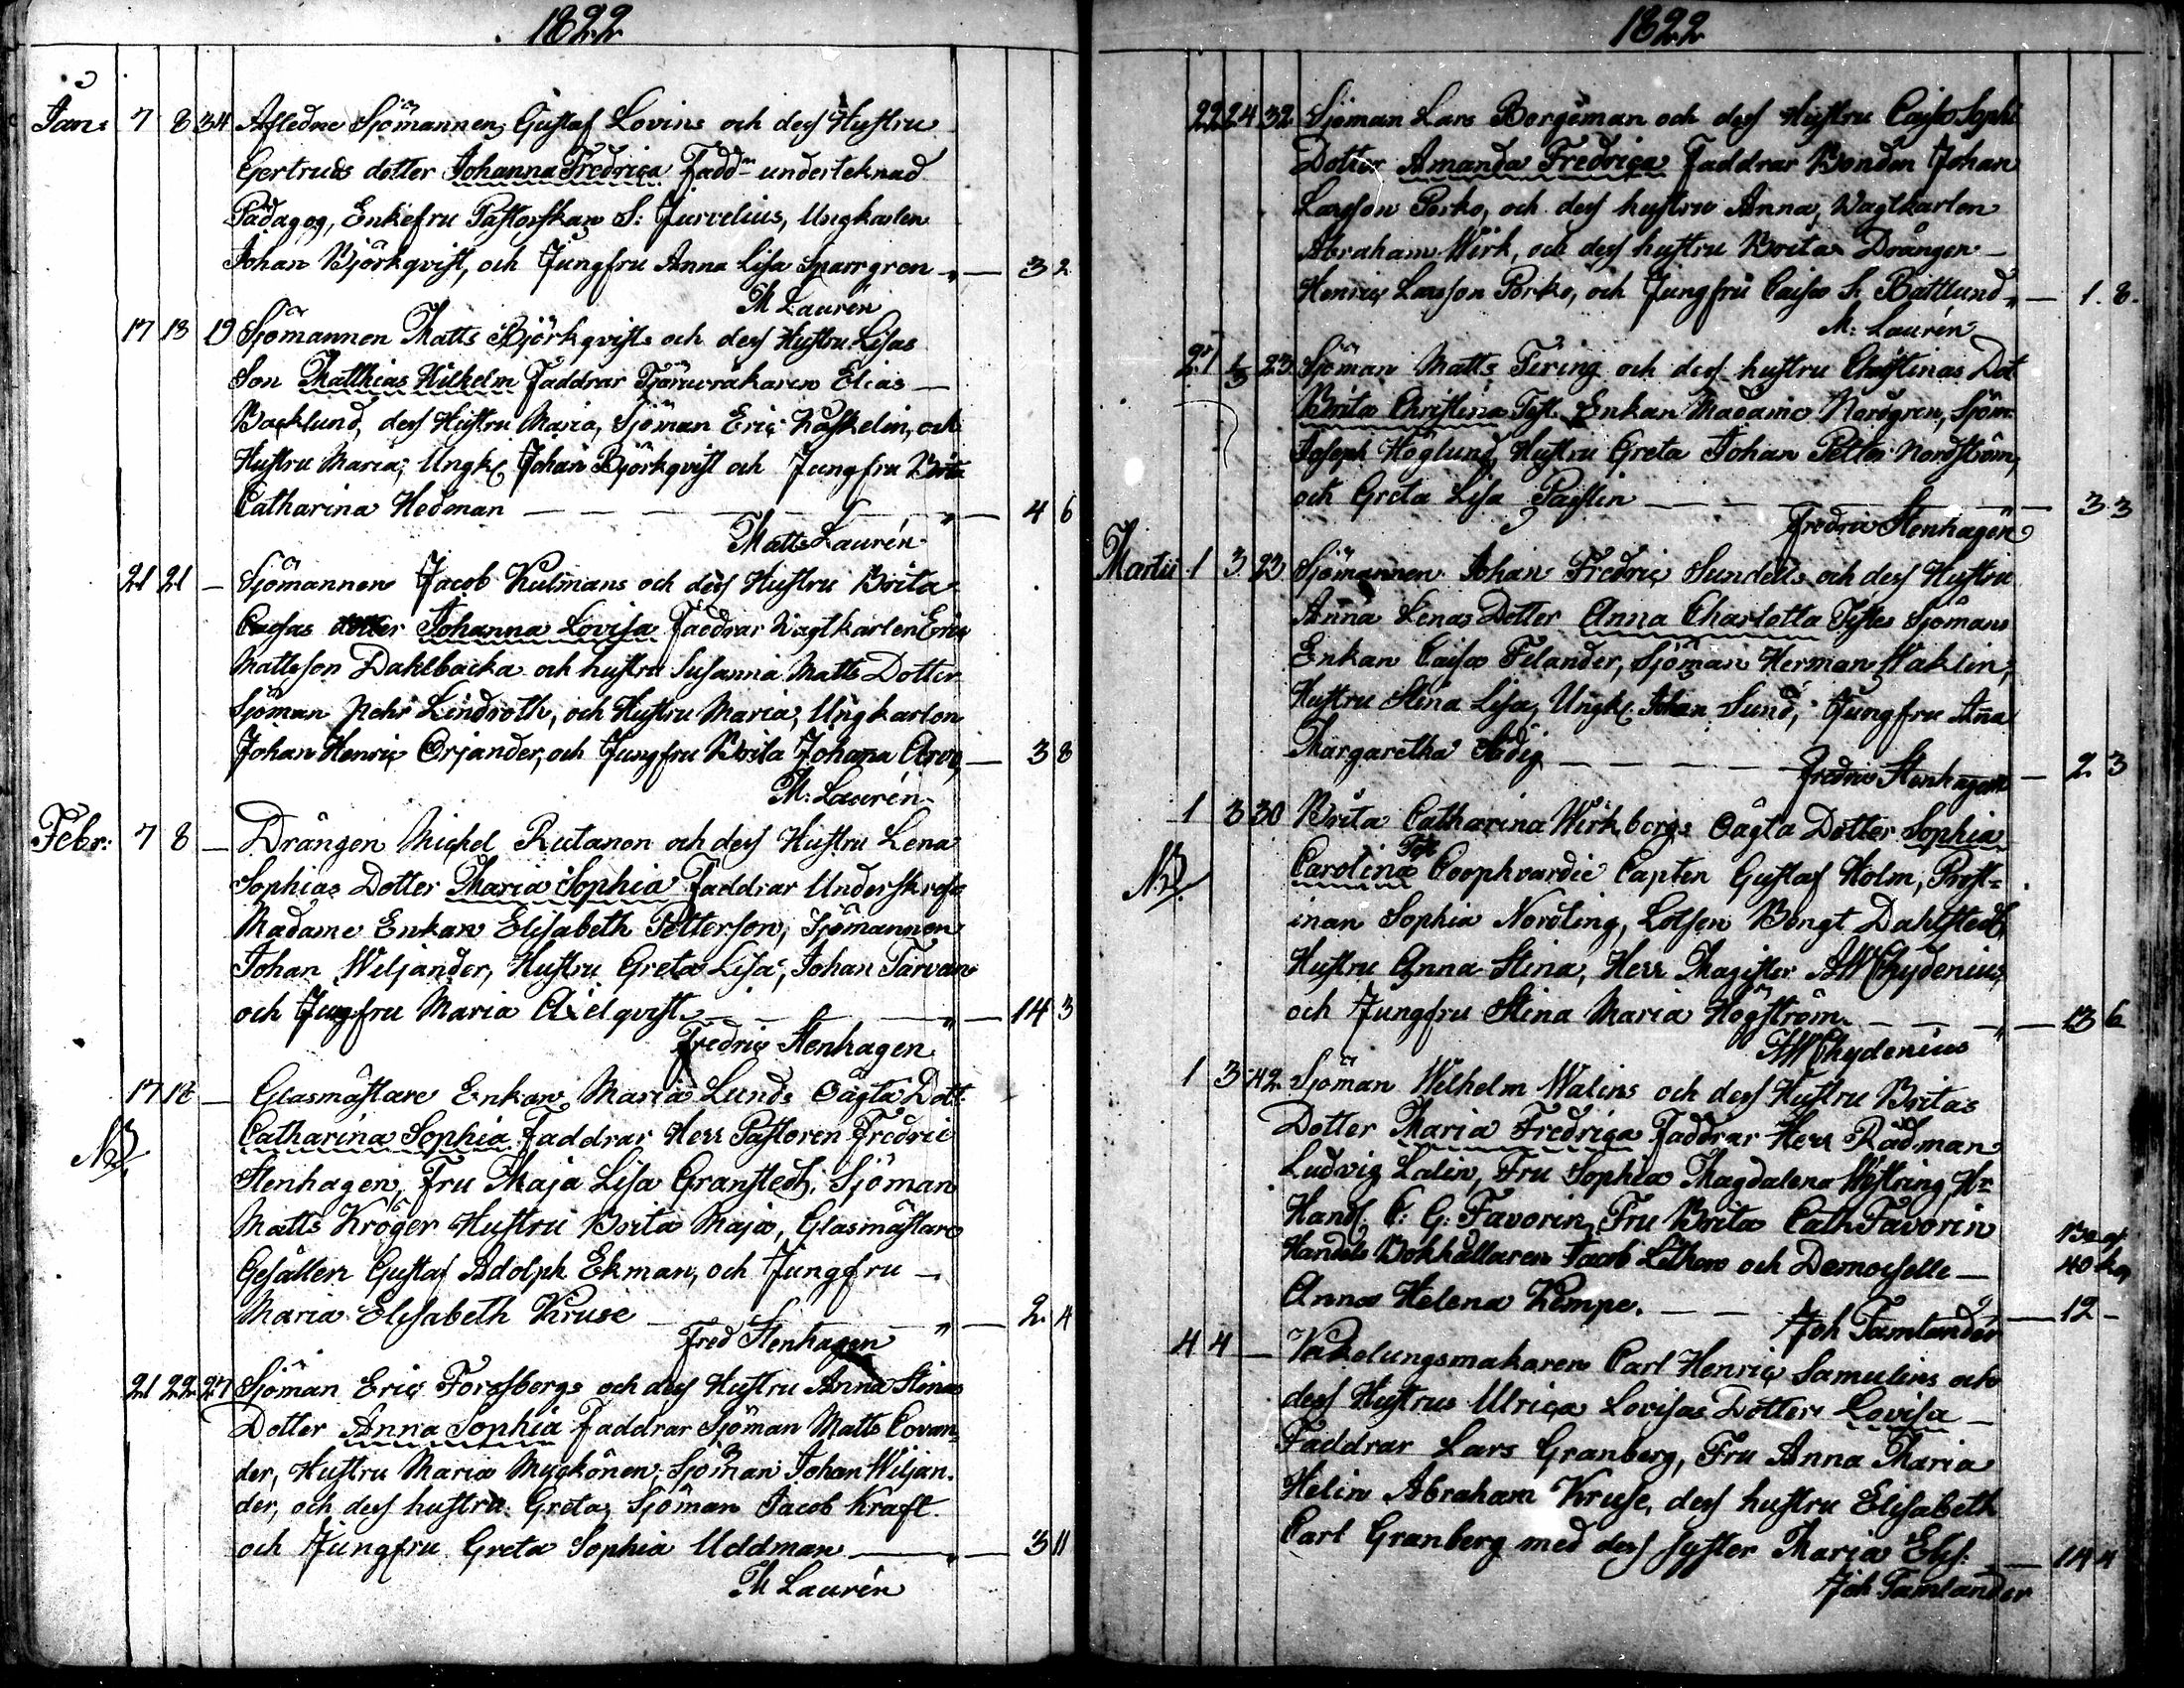 1822
Jan: 7 8 34 Afledne Sjömannen, Gustaf Lovins och dess Hustru
Gertruds dotter Johanna Fredrica Fadd- underteknad
Pädagog, Enkefru Pastorskan S: Jurvelius, Ungkarlen
Johan Björkqvist, och Jungfru Anna Lisa Sparrgren 3 2
M Laurén
17 13 19 Sjömannen Matts Björkqvists och dess Hustru Lisas
Son Matthias Wilhelm Faddrar Elias
Backlund, dess Hustru Maria, Sjöman Eric och
Hustru Maria, Ungk Johan Björkqvist och Jungfru Brita
Catharina Hedman 4 6
Matts Laurén
21 21 Sjömannen Jacob Kulmans och dess Hustru Brita
Caisas dotter Johanna Lovisa Faddrar Wagtkarlen Eric
Mattsson Dahlbacka och hustru Susanna Matts Dotter
Sjöman Pehr Lindroth, och Hustru Maria, Ungkarlen
Johan Henric Orjander, och Jungfru Brita Johana 3 8
M: Laurén
Febr: 7 8 Drängen Michel Rutanen och dess Hustru Lena
Sophias Dotter Maria Sophia Faddrar
Madame Enkan Elisabeth Petterson, Sjömannen
Johan Weljander, Hustru Greta Lisa, Johan Tarvan
och Jungfru Maria Axelqvist 14 3
Fredric Stenhagen
17 18 Glasmästare Enkan Maria Lunds Oägta Dott
NB Catharina Sophia Faddrar Herr Pastoren Fredric
Stenhagen, Fru Maja Lisa Granstedt, Sjöman
Matts Kröger Hustru Brita Maja, Glasmästare
Gesällen Gustaf Adolph Ekman, och Jungfru
Maria Elisabeth Kruse 2 4
Fred Stenhagen
21 22 27 Sjöman Eric Forssbergs och dess Hustru Anna Stinas
Dotter Anna Sophia Faddrar Sjöman Matts Covan-
der, Hustru Maria Myckönen, Sjöman Johan Wiljan-
der, och dess hustru Greta, Sjöman Jacob Kraft
och Jungfru Greta Sophia Uddman 3 11
M Laurén
1822
22 24 32 Sjöman Lars Borgsman och dess Hustru Caisa Sophi
Dotter Amanda Fredrica Faddrar Bonden Johan
Larsson Porko, och dess hustru Anna, Wagtkarlen
Abraham Wirk, och dess hustru Brita Drängen
Henric Larsson Porko, och Jungfru Caisa S. Båtlund 1. 8.
M: Laurén
27 1/3 23 Sjöman Matts Tering och dess hustru Christinas Dot
Brita Christina Test. Enkan Madame Nordgren, Sjöm
Joseph Höglund, Hustru Greta Johan Petter Nordström,
och Greta Lisa 3 3
Fredric Stenhagen
Martii 1 3 23 Sjömannen Johan Fredric Sundells och dess Hustru
Anna Lenas Dotter Anna Charlotta Testes Sjömans
Enkan Caisa Felander, Sjöman Herman Waklin,
Hustru Stina Lisa, Ungk Johan Sund, Jungfru Ana
Margaretha 2 3
Fredric Stenhagen
1 3 30 Brita Catharina Wirkbergs Oägta Dotter Sophia
NB Carolina Test Coophvardie Capten Gustaf Holm, Prost-
innan Sophia Nordling, Lotsen Bengt Dahlstedt,
Hustru Anna Stina, Herr Magister AW Chydenius,
och Jungfru Stina Maria Högström 13 6
AW Chydenius
1 3 42 Sjöman Wilhelm Walins och dess Hustru Britas
Dotter Maria Fredrica Faddrar Herr Rådman
Ludvig Lalin, Fru Sophia Magdalena Westring, Hr
Hand. C: G: Favorin, Fru Brita Cath Favorin
Handels Bokhållaren Jacob Lithen och Demoiselle 40 kop
Anna Helena Kempe. 12 -
Joh Tamlander
4 4 Kakelungsmakaren Carl Henric Samulins och
dess Hustrus Ulrica Lovisas Dotter Lovisa
Faddrar Lars Granberg, Fru Anna Maria
Helin Abraham Kruse, dess hustru Elisabeth
Carl Granberg med dess syster Maria Elis: 14 4
Joh Tamlander